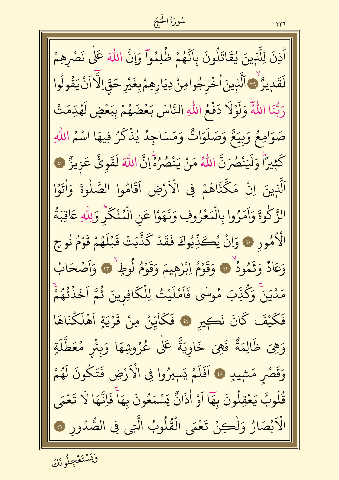 سُورَةُ الْحَجِّ
٣٣٦
اُذِنَ لِلَّذ۪ينَ يُقَاتَلُونَ بِاَنَّهُمْ ظُلِمُواۜ وَاِنَّ اللهَ عَلٰى نَصْرِهِمْ
لَقَد۪يرٌۙ ﴿٣٩﴾ اَلَّذ۪ينَ اُخْرِجُوا مِنْ دِيَارِهِمْ بِغَيْرِ حَقٍّ اِلَّٓا اَنْ يَقُولُوا
رَبُّنَا اللهُۜ وَلَوْلَا دَفْعُ اللهِ النَّاسَ بَعْضَهُمْ بِبَعْضٍ لَهُدِّمَتْ
صَوَامِعُ وَبِيَعٌ وَصَلَوَاتٌ وَمَسَاجِدُ يُذْكَرُ ف۪يهَا اسْمُ اللهِ
كَث۪يرًاۜ وَلَيَنْصُرَنَّ اللهُ مَنْ يَنْصُرُهُۜ اِنَّ اللهَ لَقَوِيٌّ عَز۪يزٌ ﴿٤٠﴾
اَلَّذ۪ينَ اِنْ مَكَّنَّاهُمْ فِي الْاَرْضِ اَقَامُوا الصَّلٰوةَ وَاٰتَوُا
الزَّكٰوةَ وَاَمَرُوا بِالْمَعْرُوفِ وَنَهَوْا عَنِ الْمُنْكَرِۜ وَلِلهِ عَاقِبَةُ
الْاُمُورِ ﴿٤١﴾ وَاِنْ يُكَذِّبُوكَ فَقَدْ كَذَّبَتْ قَبْلَهُمْ قَوْمُ نُوحٍ
وَعَادٌ وَثَمُودُۙ ﴿٤٢﴾ وَقَوْمُ اِبْرٰه۪يمَ وَقَوْمُ لُوطٍۙ ﴿٤٣﴾ وَاَصْحَابُ
مَدْيَنَۚ وَكُذِّبَ مُوسٰى فَاَمْلَيْتُ لِلْكَافِر۪ينَ ثُمَّ اَخَذْتُهُمْۚ
فَكَيْفَ كَانَ نَك۪يرِ ﴿٤٤﴾ فَكَاَيِّنْ مِنْ قَرْيَةٍ اَهْلَكْنَاهَا
وَهِيَ ظَالِمَةٌ فَهِيَ خَاوِيَةٌ عَلٰى عُرُوشِهَا وَبِئْرٍ مُعَطَّلَةٍ
وَقَصْرٍ مَش۪يدٍ ﴿٤٥﴾ اَفَلَمْ يَس۪يرُوا فِي الْاَرْضِ فَتَكُونَ لَهُمْ
قُلُوبٌ يَعْقِلُونَ بِهَٓا اَوْ اٰذَانٌ يَسْمَعُونَ بِهَاۚ فَاِنَّهَا لَا تَعْمَى
الْاَبْصَارُ وَلٰكِنْ تَعْمَى الْقُلُوبُ الَّت۪ي فِي الصُّدُورِ ﴿٤٦﴾
وَيَسْتَعْجِلُونَكَ